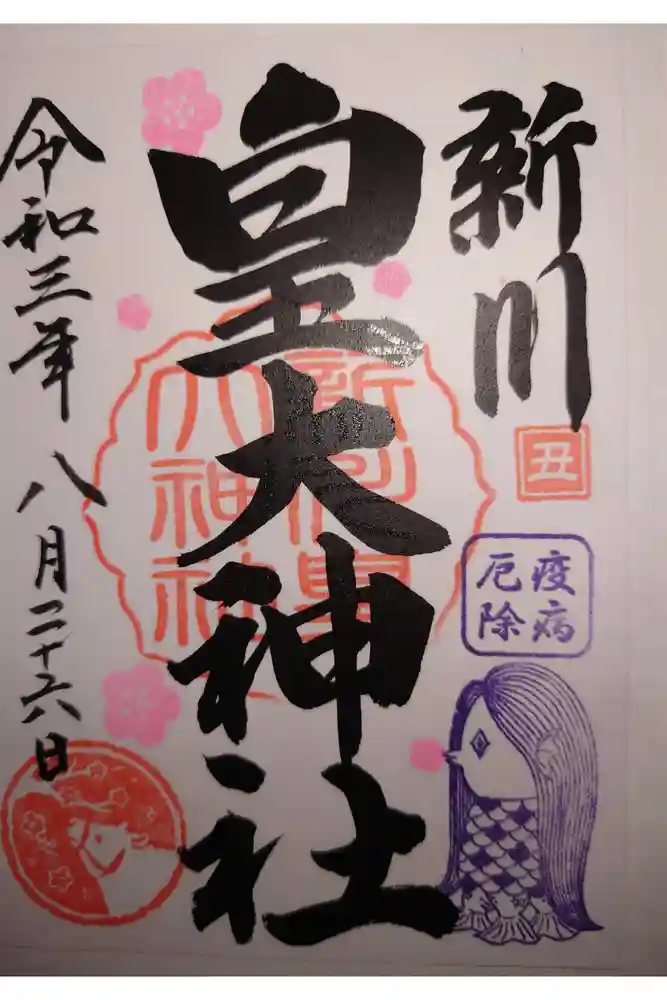 新川
丑
疫病
厄除
皇大神社
新川皇
大神社
令和三年八月二十六日